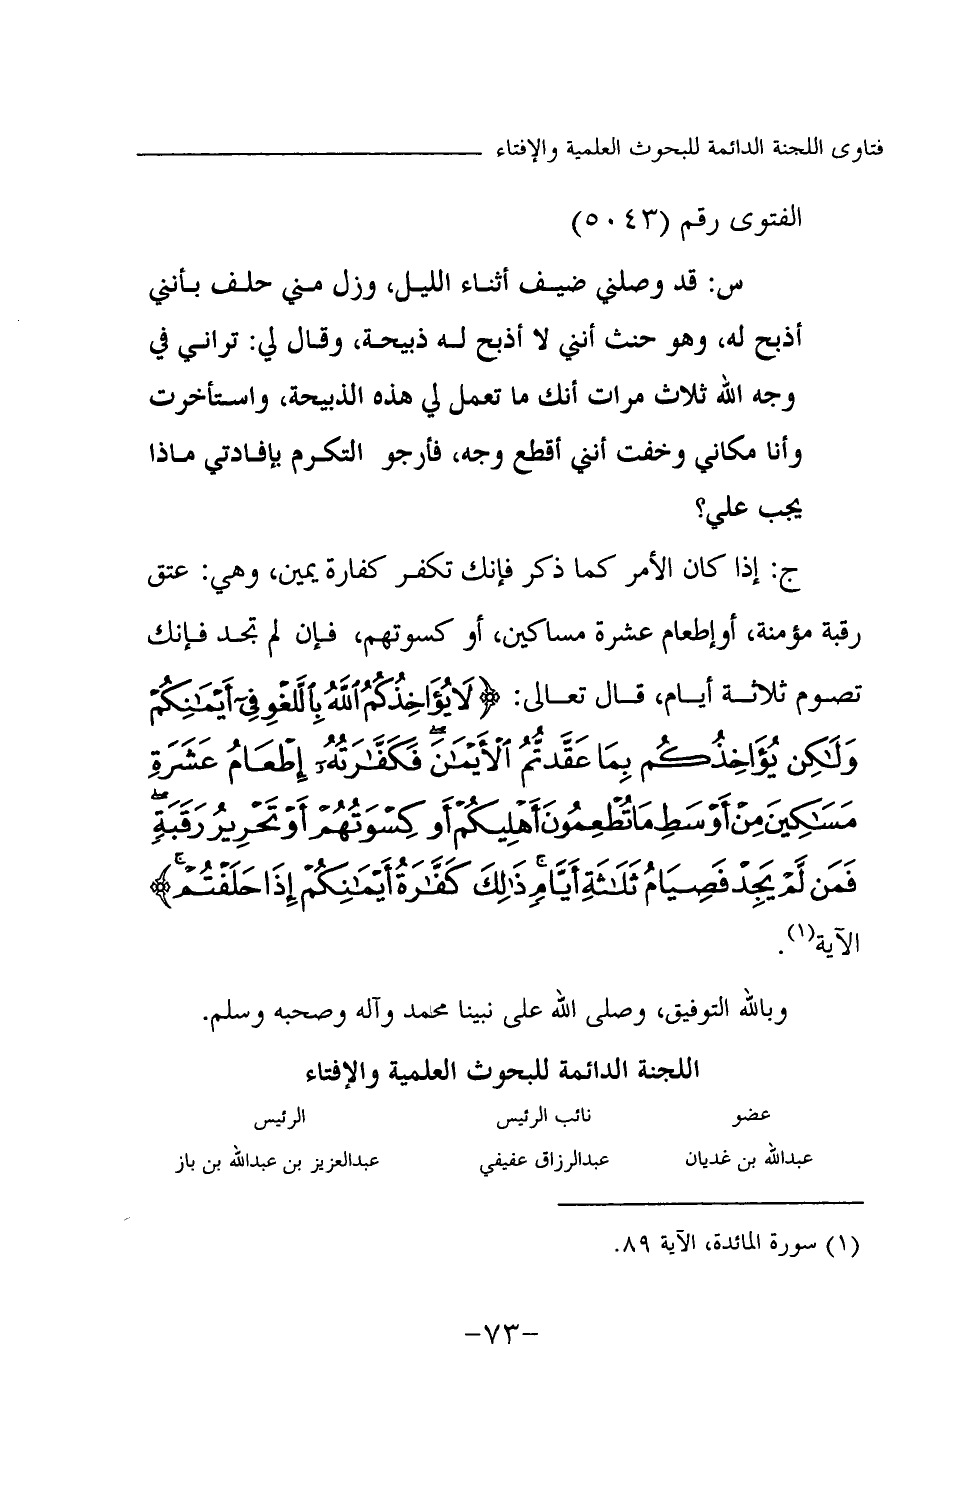 فتاوى اللجنة الدائمة للبحوث العلمية والإفتاء
الفتوى رقم (٥٠٤٣)
س: قد وصلني ضيف أثناء الليل، وزل مني حلف بأنني
أذبح له، وهو حنث أنني لا أذبح له ذبيحة، وقال لي: تراني في
وجه الله ثلاث مرات أنك ما تعمل لي هذه الذبيحة، واستأخرت
وأنا مكاني وخفت أنني أقطع وجه، فأرجو التكرم بإفادتي ماذا
يجب علي؟
ج: إذا كان الأمر كما ذكر فإنك تكفر كفارة يمين، وهي: عتق
رقبة مؤمنة، أوإطعام عشرة مساكين، أو كسوتهم، فإن لم تجد فإنك
تصوم ثلاثة أيام، قال تعالى: ﴿لَا يُؤَاخِذُكُمُ ٱللَّهُ بِٱللَّغْوِ فِىٓ أَيْمَٰنِكُمْ
وَلَٰكِن يُؤَاخِذُكُم بِمَا عَقَّدتُّمُ ٱلْأَيْمَٰنَ ۖ فَكَفَّٰرَتُهُۥٓ إِطْعَامُ عَشَرَةِ
مَسَٰكِينَ مِنْ أَوْسَطِ مَا تُطْعِمُونَ أَهْلِيكُمْ أَوْ كِسْوَتُهُمْ أَوْ تَحْرِيرُ رَقَبَةٍ ۖ
فَمَن لَّمْ يَجِدْ فَصِيَامُ ثَلَٰثَةِ أَيَّامٍ ۚ ذَٰلِكَ كَفَّٰرَةُ أَيْمَٰنِكُمْ إِذَا حَلَفْتُمْ ۚ﴾
الآية(١).
وبالله التوفيق، وصلى الله على نبينا محمد وآله وصحبه وسلم.
اللجنة الدائمة للبحوث العلمية والإفتاء
عضو نائب الرئيس الرئيس
عبدالله بن غديان عبدالرزاق عفيفي عبدالعزيز بن عبدالله بن باز
(١) سورة المائدة، الآية ٨٩.
-٧٣-